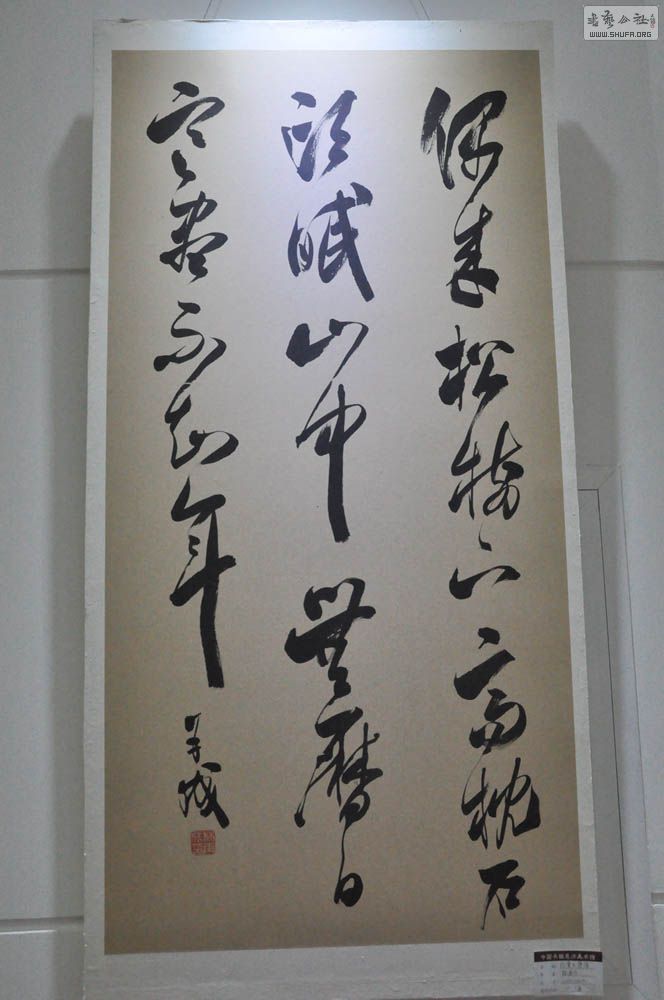 書藝公社
WWW.SHUFA.ORG
偶来松樹下高枕石
頭眠山中無曆日
寒盡不知年